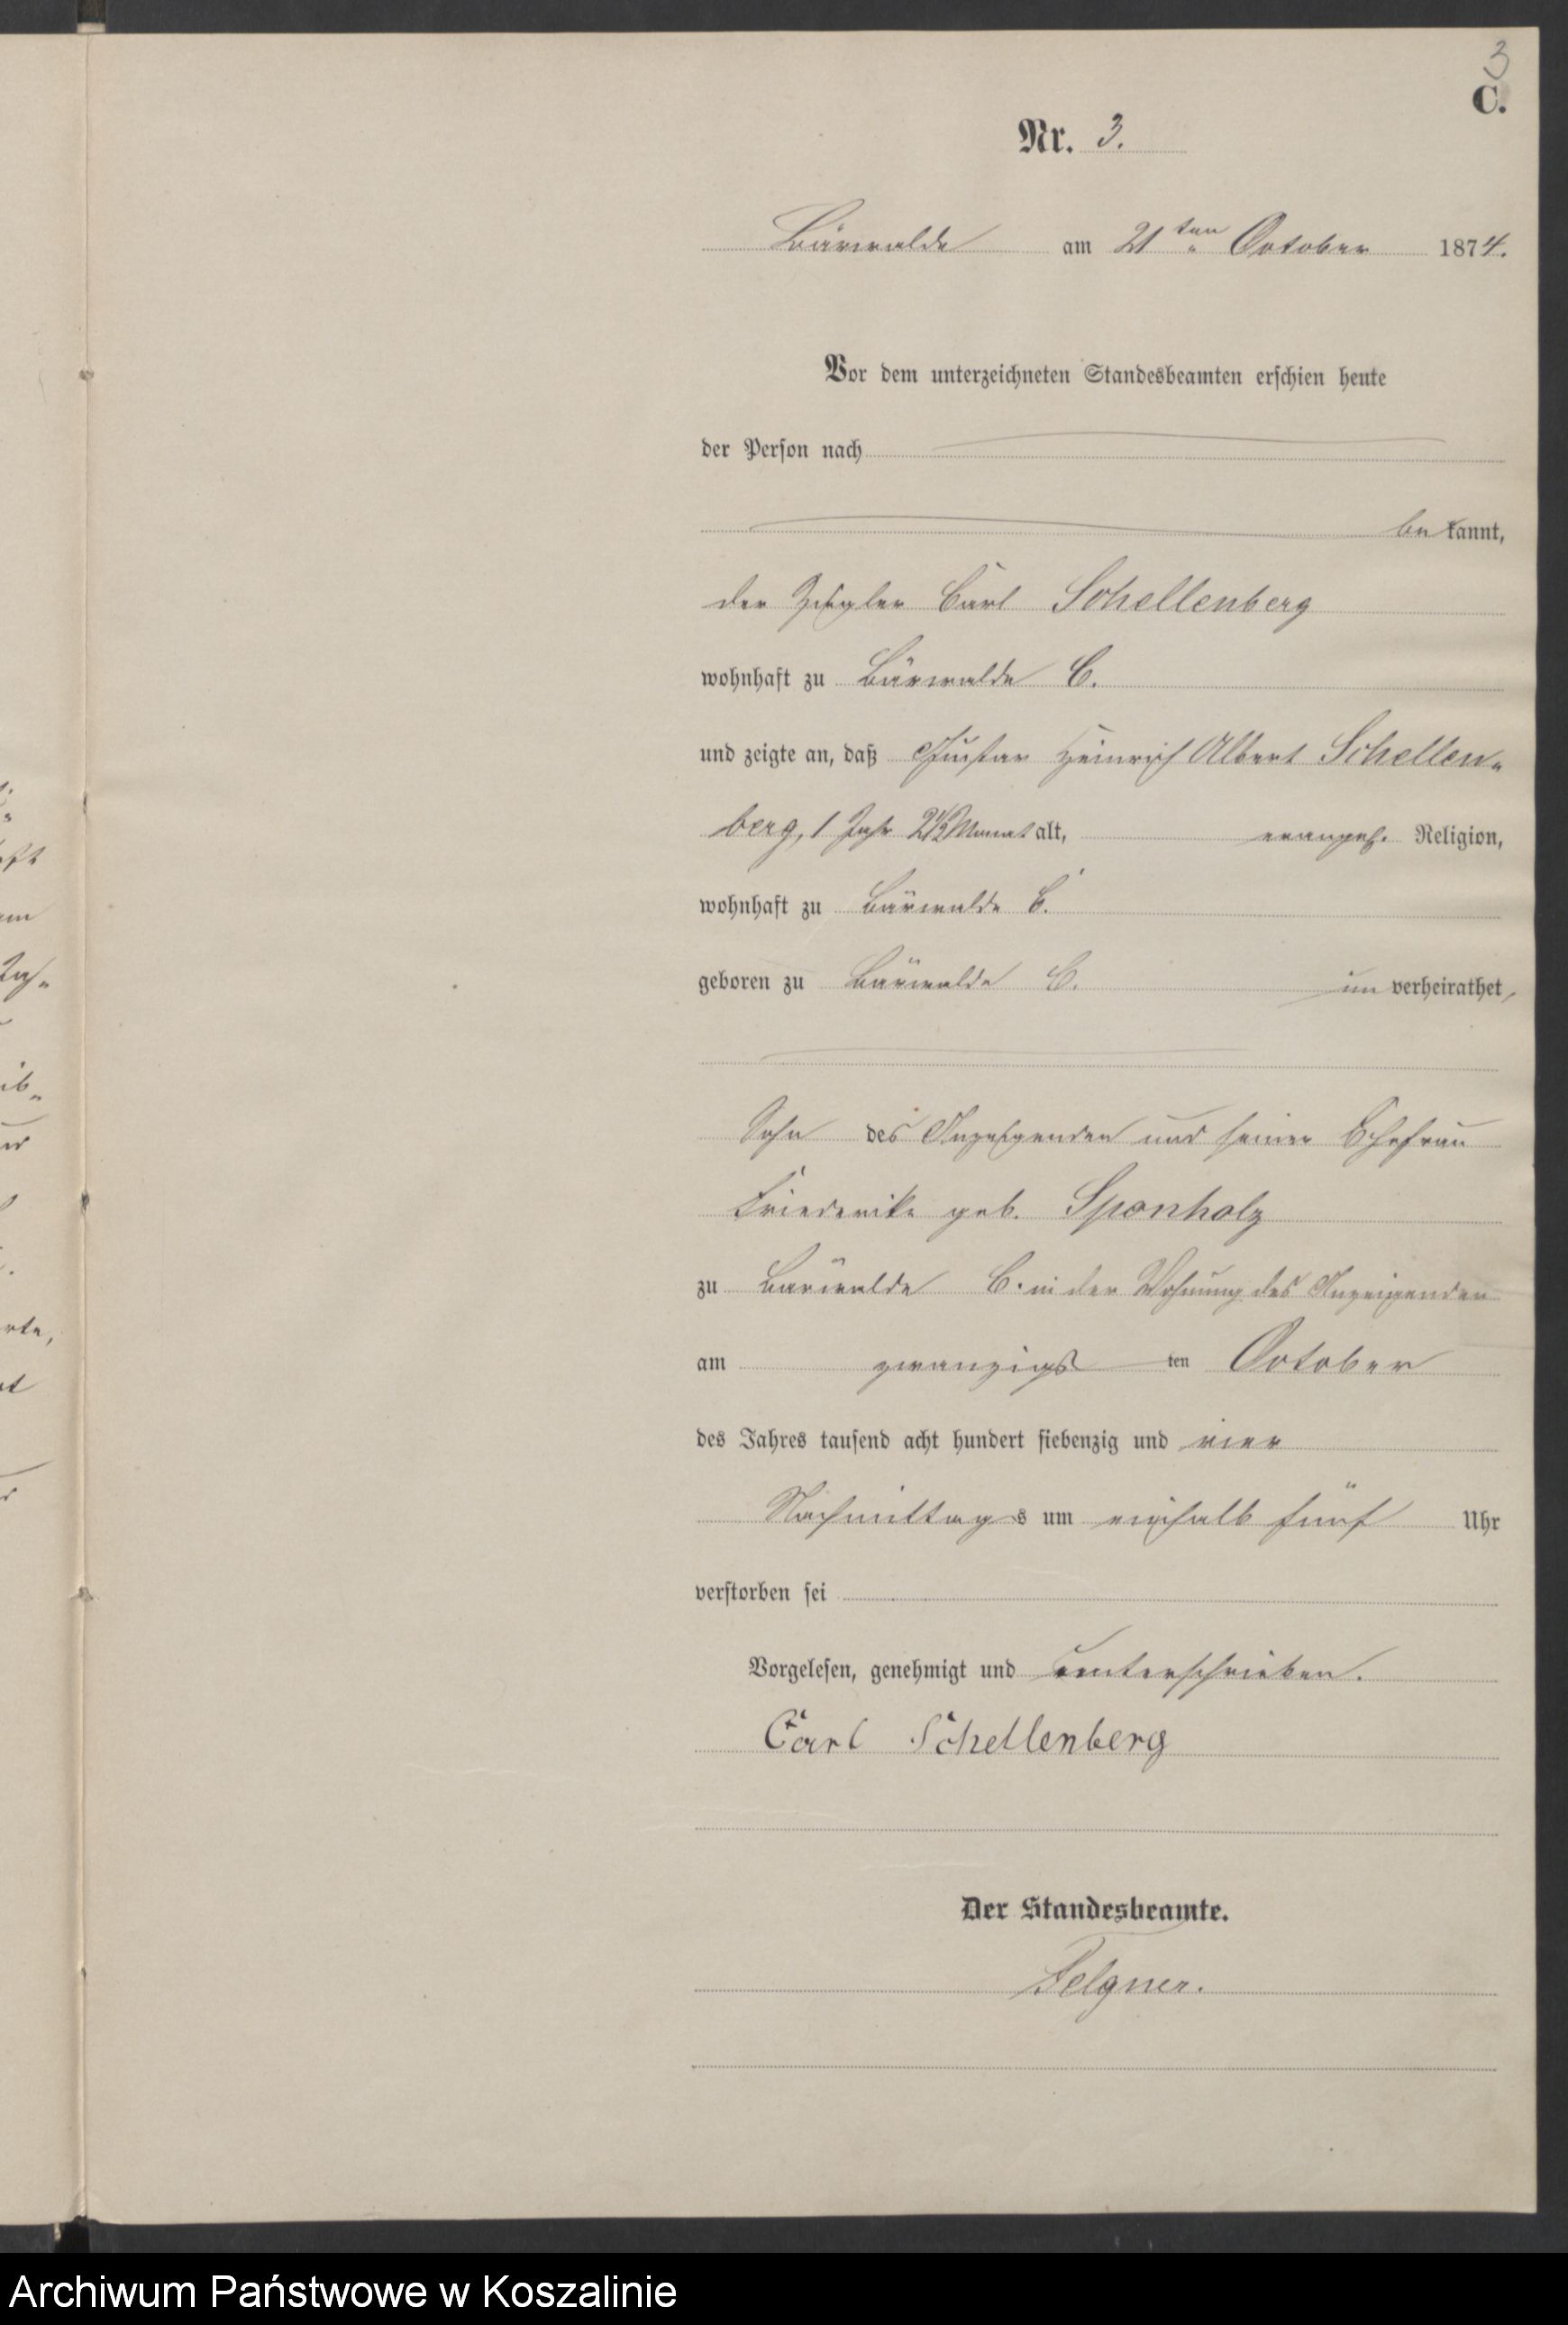 3
C.
Nr. 3.
Bärwalde am 21ten October 1874.
Vor dem unterzeichneten Standesbeamten erschien heute
der Person nach
bekannt,
der Ziegler Carl Schellenberg
wohnhaft zu Bärwalde C.
und zeigte an, daß Gustav Heinrich Albert Schellen-
berg, 1 Jahr 2½ Monat alt, evangel. Religion,
wohnhaft zu Bärwalde C.
geboren zu Bärwalde C. unverheirathet,
Sohn des Anzeigenden und seiner Ehefrau
Friederike geb. Sponholz
zu Bärwalde C. in der Wohnung des Anzeigenden
am zwanzigsten October
des Jahres tausend acht hundert siebenzig und vier
Nachmittags um einhalb fünf Uhr
verstorben sei
Vorgelesen, genehmigt und unterschrieben.
Carl Schellenberg
Der Standesbeamte.
Felgner.
Archiwum Państwowe w Koszalinie